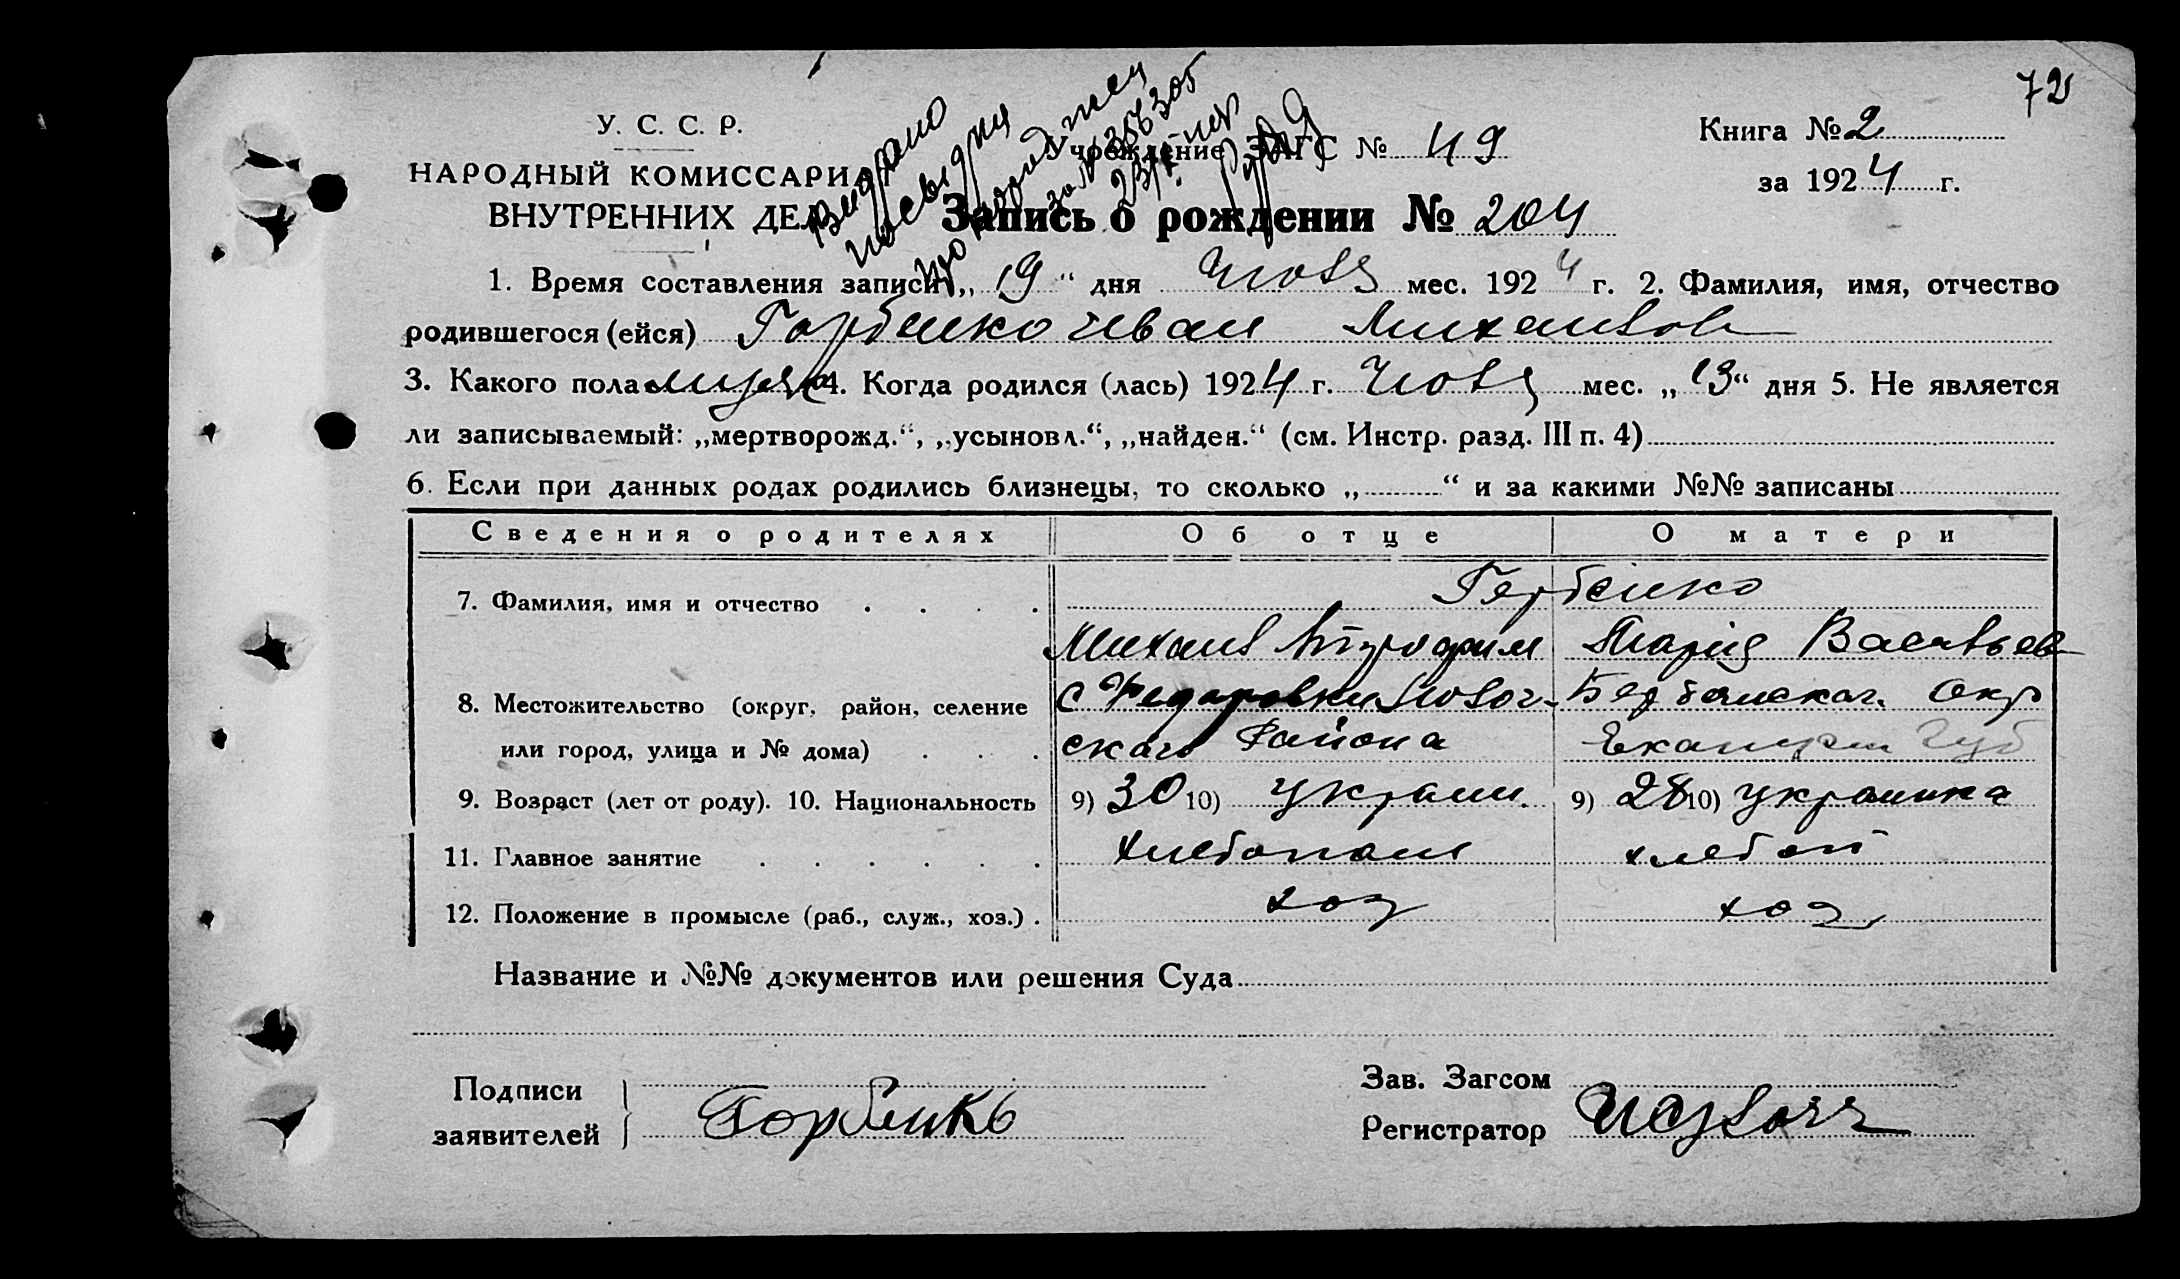 72
У. С. С. Р.
НАРОДНЫЙ КОМИССАРИАТ
ВНУТРЕННИХ ДЕЛ
Видано
Учреждение ЗАГС № 49
Книга № 2
за 1924 г.
Запись о рождении № 204
1. Время составления записи „19“ дня мес. 1924 г. 2. Фамилия, имя, отчество
родившегося (ейся) Горбенко Иван Михаилов
3. Какого пола муж 4. Когда родился (лась) 1924 г. мес. „13“ дня 5. Не является
ли записываемый: „мертворожд.“, „усыновл.“, „найден.“ (см. Инстр. разд. III п. 4)
6. Если при данных родах родились близнецы, то сколько „ “ и за какими №№ записаны
Сведения о родителях Об отце О матери
7. Фамилия, имя и отчество Горбенко
Михаил Мария Васильев
8. Местожительство (округ, район, селение с Федоровки Окр
или город, улица и № дома) скаго Района Губ
9. Возраст (лет от роду). 10. Национальность 9) 30 10) украин. 9) 28 10) украинка
11. Главное занятие хлебопаш хлебоп
12. Положение в промысле (раб., служ., хоз.) хоз хоз
Название и №№ документов или решения Суда
Подписи
заявителей Горбенко
Зав. Загсом
Регистратор